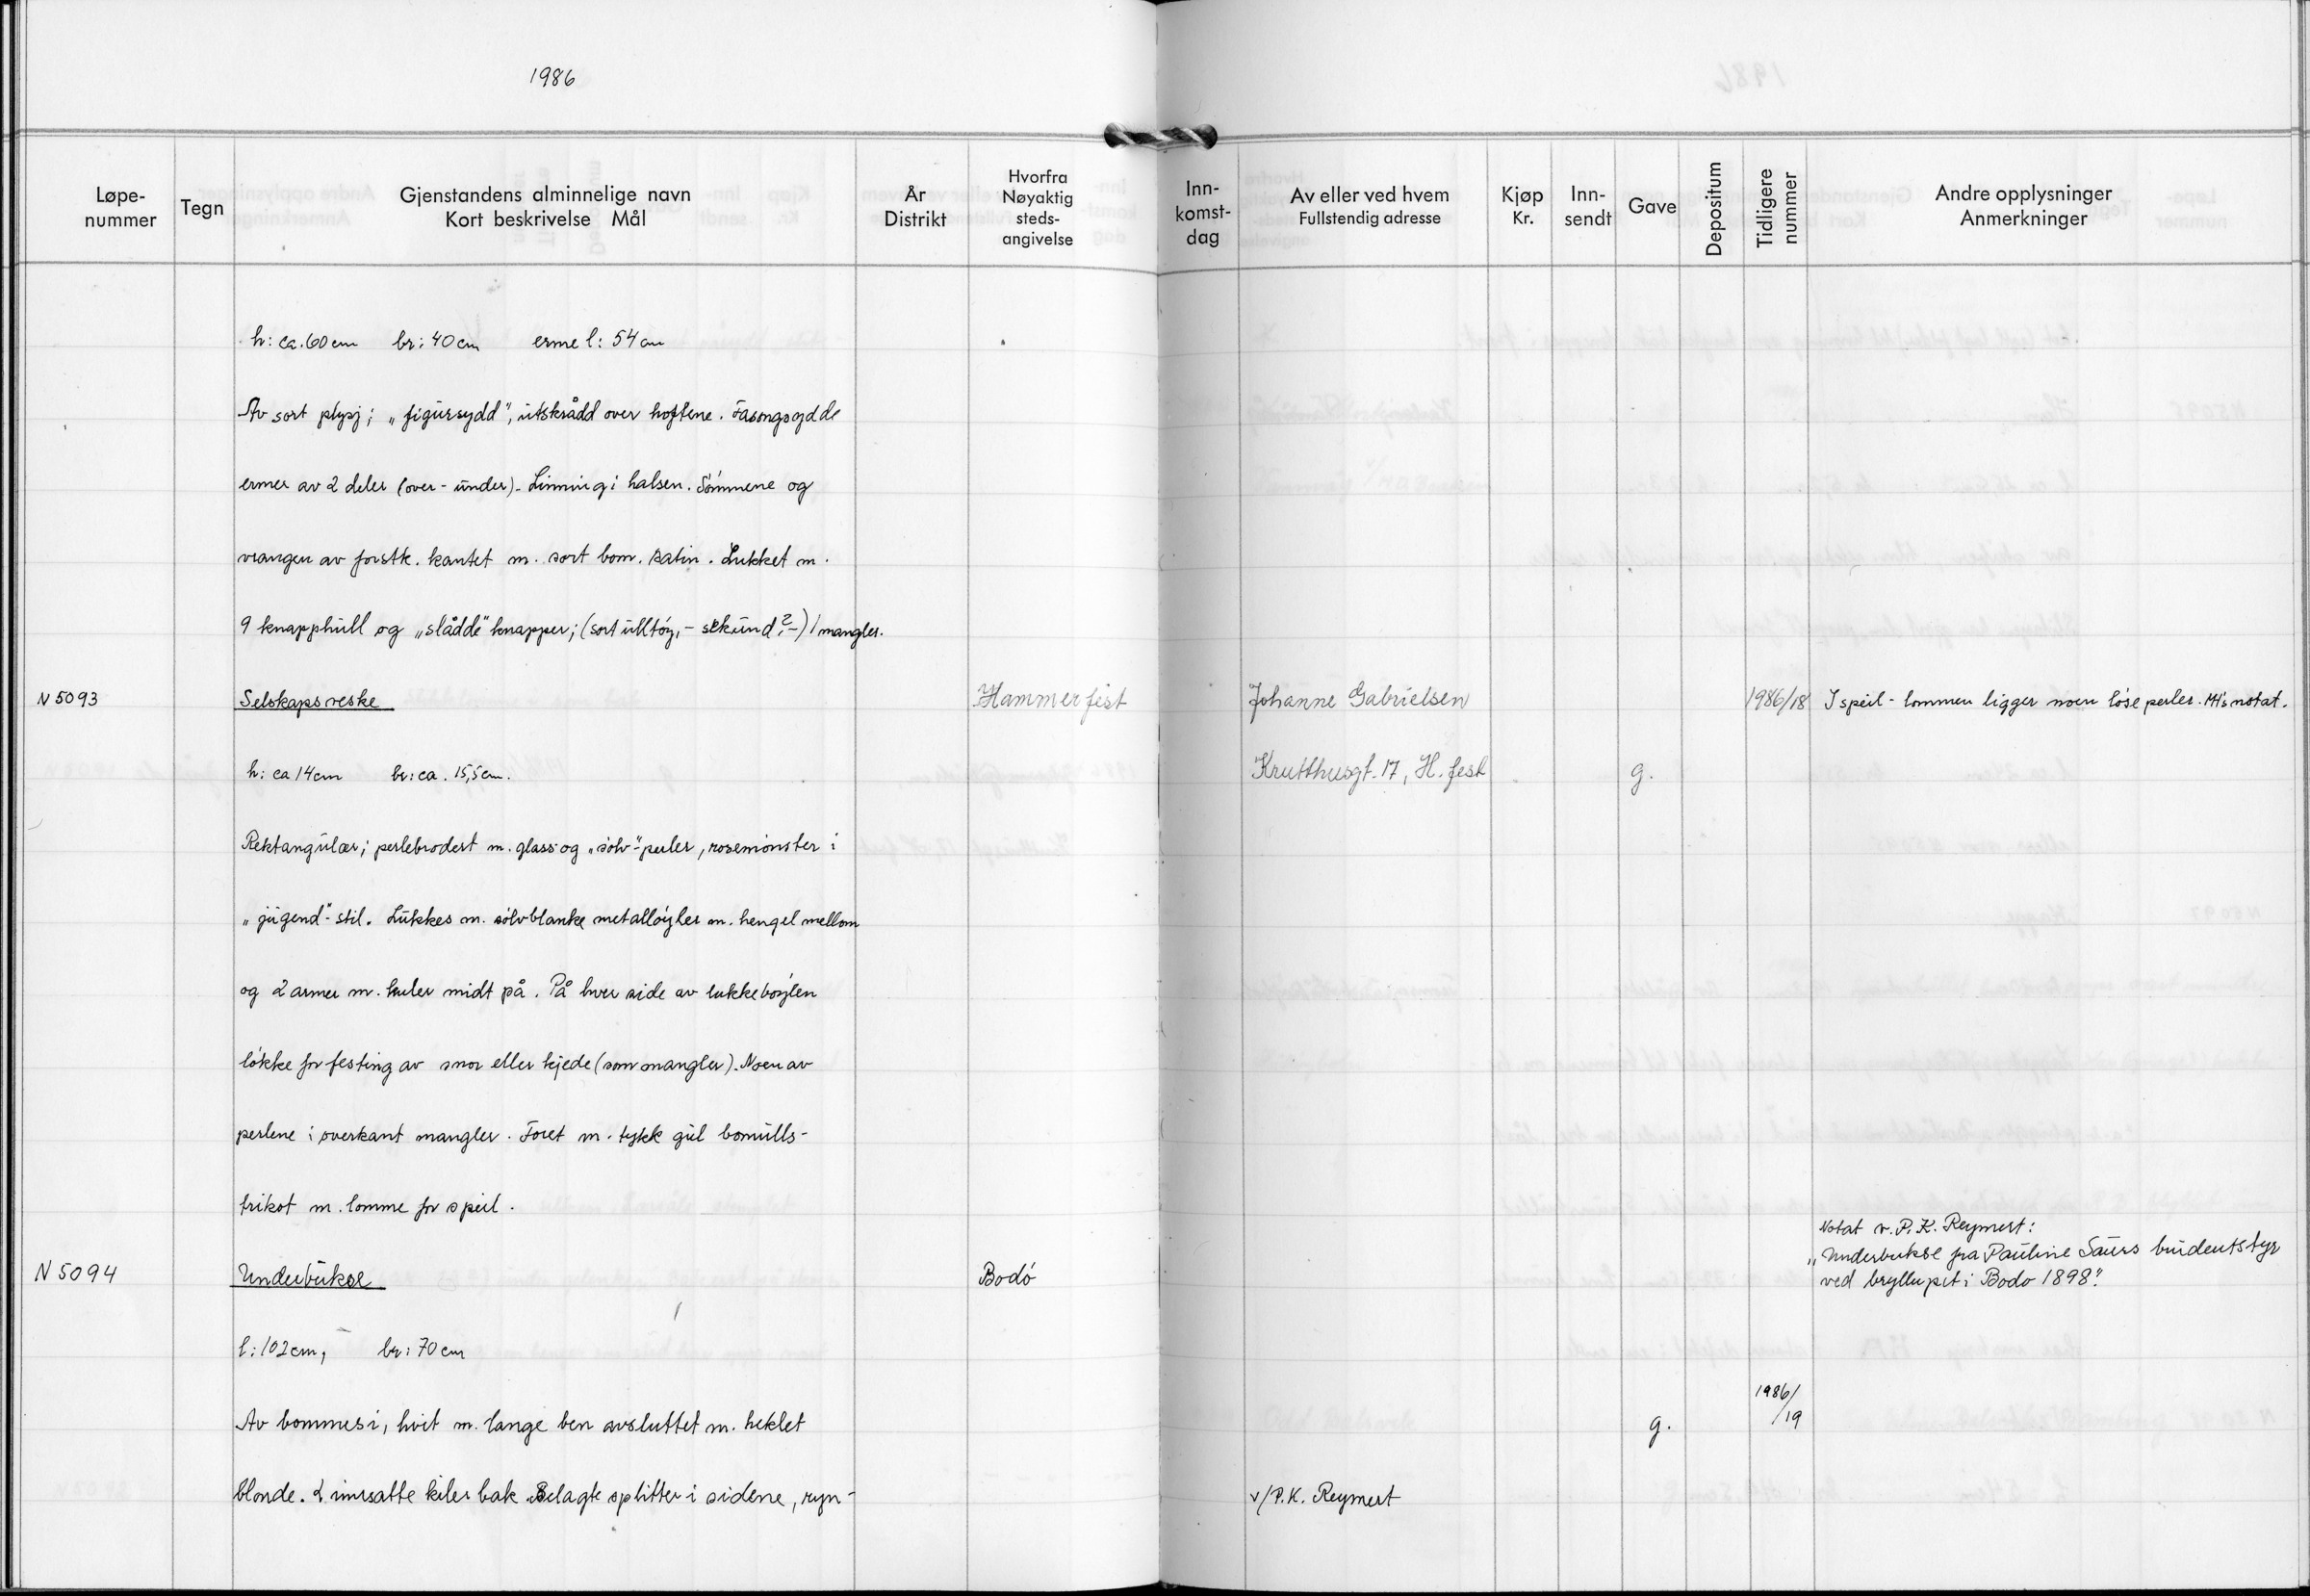 1986
Løpe-
nummer
Tegn
Gjenstandens alminnelige navn
Kort beskrivelse Mål
År
Distrikt
Hvorfra
Nøyaktig
steds-
angivelse
Inn-
komst-
dag
Av eller ved hvem
Fullstendig adresse
Kjøp
Kr.
Inn-
sendt
Gave
Depositum
Tidligere
nummer
Andre opplysninger
Anmerkninger
h: ca. 60 cm br: 40 cm erme l: 54 cm
Av sort plysj; „figursydd", utskrådd over hoftene. Fasongsydde
ermer av 2 deler (over - under). Linning i halsen. Sómmene og
vrangen av forstk. kantet m. sort bom. satin. Lukket m.
9 knapphull og „slådde" knapper; (sort ulltóy, - sekund.? -) 1 mangler.
N 5093 Selskapsveske Hammerfest Johanne Gabrielsen 1986/18 I speil - lommen ligger noen lóse perler. MH's notat.
h: ca 14 cm br: ca. 15,5 cm. Krutthusgt. 17, H. fest g.
Rektangulær; perlebrodert m. glass og „sólv-" perler, rosemónster i
„jugend"- stil. Lukkes m. sólvblanke metallbóyler m. hengsel mellom
og 2 armer m. kuler midt på. På hver side av lukkebóylen
lókke for festing av snor eller kjede (som mangler). Noen av
perlene i overkant mangler. Foret m. tykk gul bomulls-
trikot m. lomme for speil.
Notat v. P. K. Reymert:
„Underbukse fra Pauline Saurs brudeutstyr
N 5094 Underbukse Bodó ved bryllupet i Bodo 1898".
l: 102 cm, br: 70 cm
1986/
Av bommesi, hvit m. lange ben avsluttet m. heklet g. /19
blonde. 2 innsatte kiler bak. Belagte splitter i sidene, ryn- v/P.K. Reymert